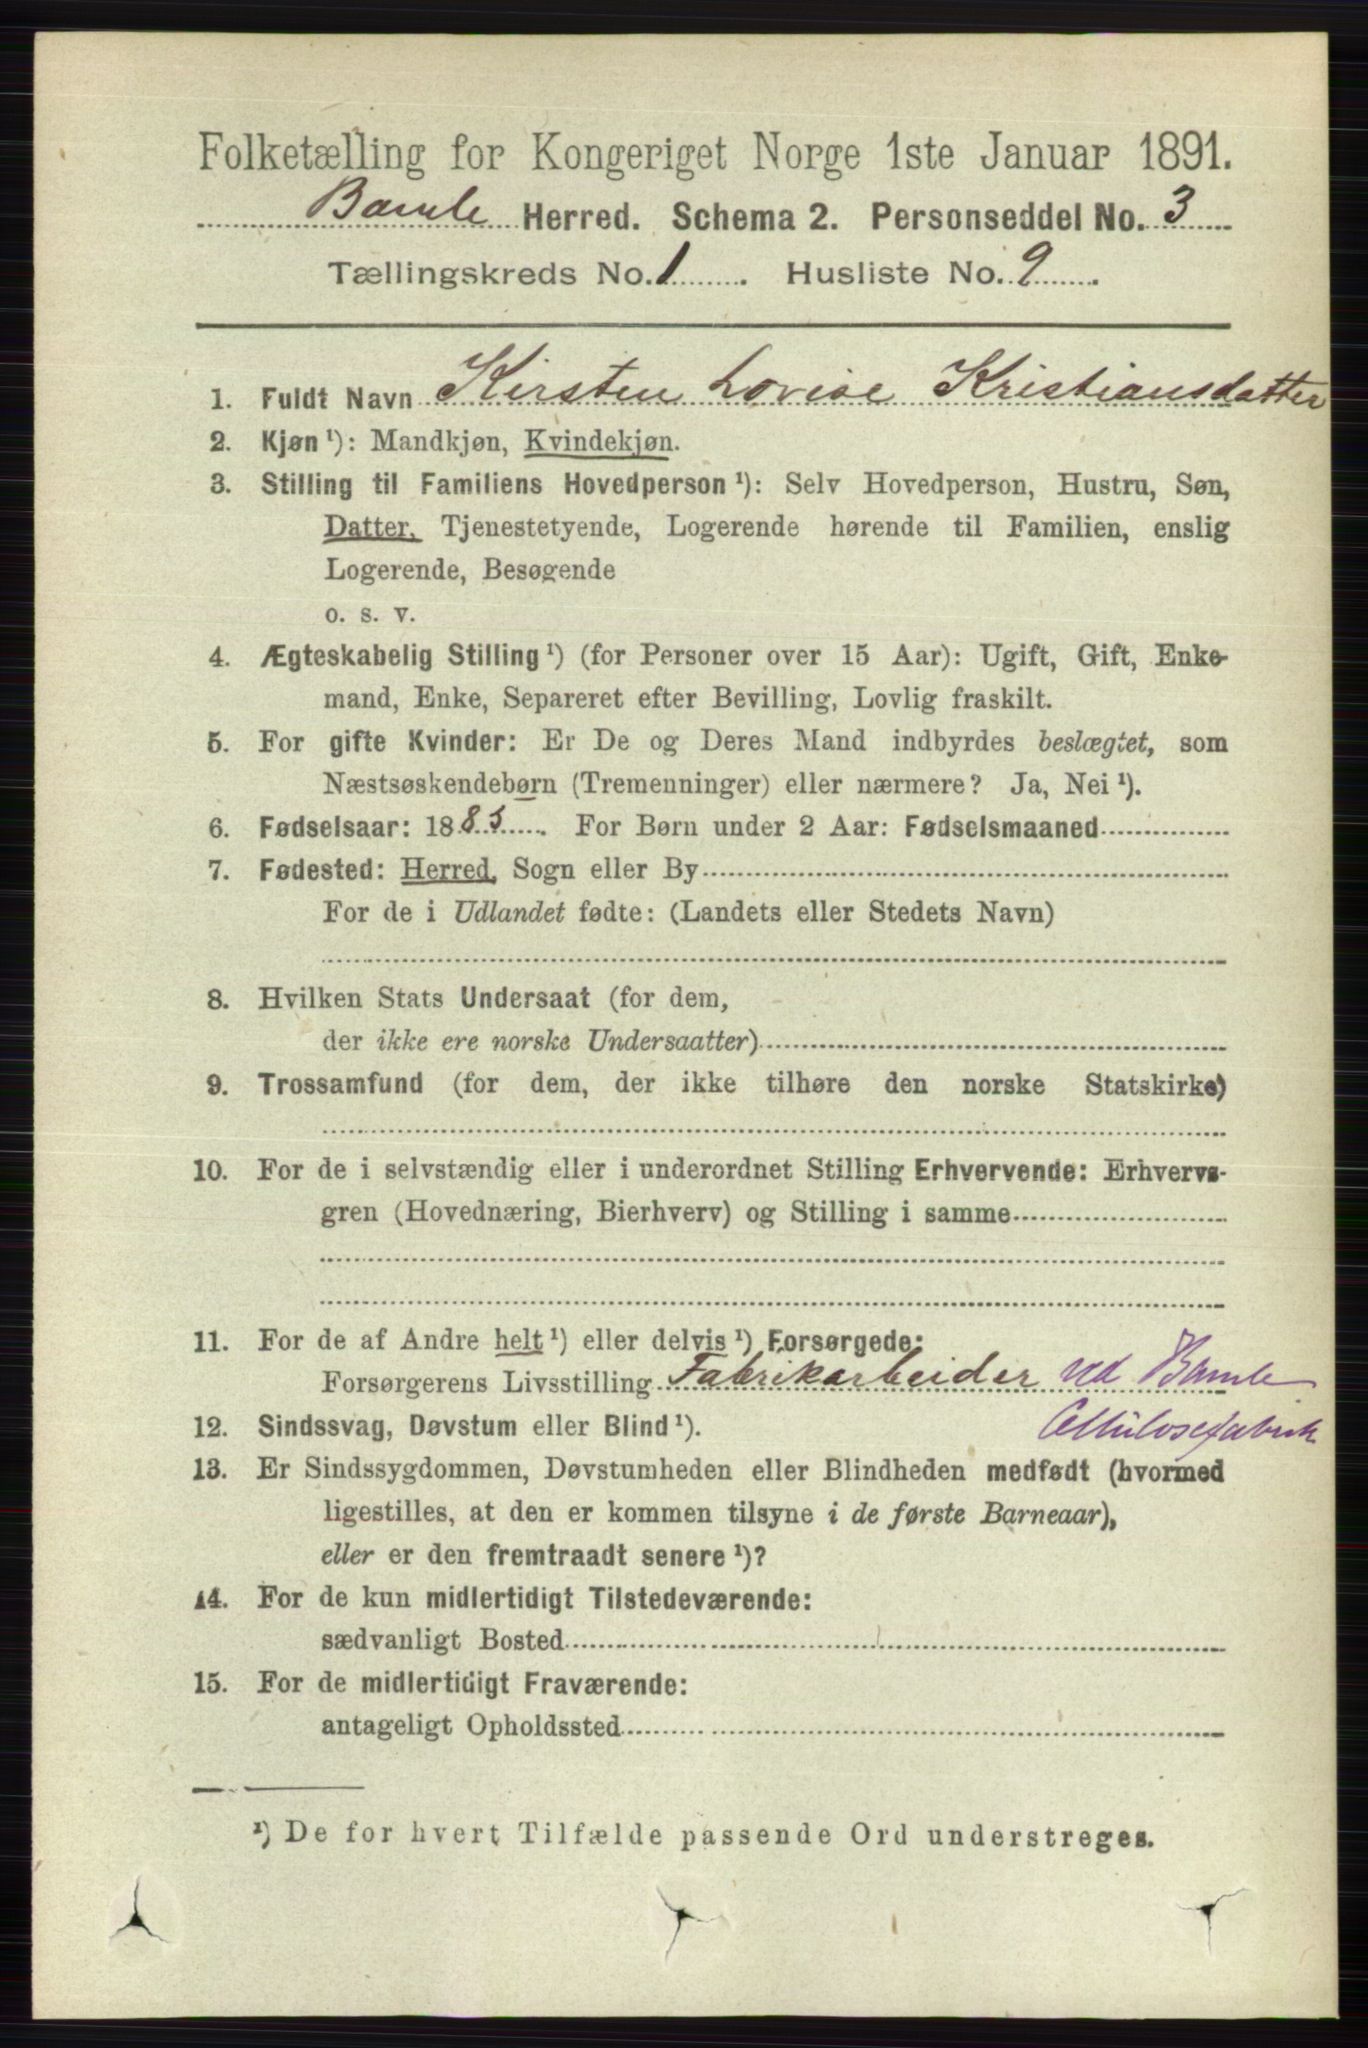 Folketælling for Kongeriget Norge 1ste Januar 1891.
Bamle Herred. Schema 2. Personseddel No. 3
Tællingskreds No. 1. Husliste No. 9.
1. Fuldt Navn Kirsten Lovise Kristiansdatter
2. Kjøn ¹): Mandkjøn, Kvindekjøn.
3. Stilling til Familiens Hovedperson ¹): Selv Hovedperson, Hustru, Søn,
Datter, Tjenestetyende, Logerende hørende til Familien, enslig
Logerende, Besøgende
o. s. v.
4. Ægteskabelig Stilling ¹) (for Personer over 15 Aar): Ugift, Gift, Enke-
mand, Enke, Separeret efter Bevilling, Lovlig fraskilt.
5. For gifte Kvinder: Er De og Deres Mand indbyrdes beslægtet, som
Næstsøskendebørn (Tremenninger) eller nærmere? Ja, Nei ¹).
6. Fødselsaar: 1885. For Børn under 2 Aar: Fødselsmaaned
7. Fødested: Herred, Sogn eller By
For de i Udlandet fødte: (Landets eller Stedets Navn)
8. Hvilken Stats Undersaat (for dem,
der ikke ere norske Undersaatter)
9. Trossamfund (for dem, der ikke tilhøre den norske Statskirke)
10. For de i selvstændig eller i underordnet Stilling Erhvervende: Erhvervs-
gren (Hovednæring, Bierhverv) og Stilling i samme
11. For de af Andre helt ¹) eller delvis ¹) Forsørgede:
Forsørgerens Livsstilling Fabrikarbeider ved Bamle
Cellulosefabrik
12. Sindssvag, Døvstum eller Blind ¹).
13. Er Sindssygdommen, Døvstumheden eller Blindheden medfødt (hvormed
ligestilles, at den er kommen tilsyne i de første Barneaar),
eller er den fremtraadt senere ¹)?
14. For de kun midlertidigt Tilstedeværende:
sædvanligt Bosted
15. For de midlertidigt Fraværende:
antageligt Opholdssted
¹) De for hvert Tilfælde passende Ord understreges.